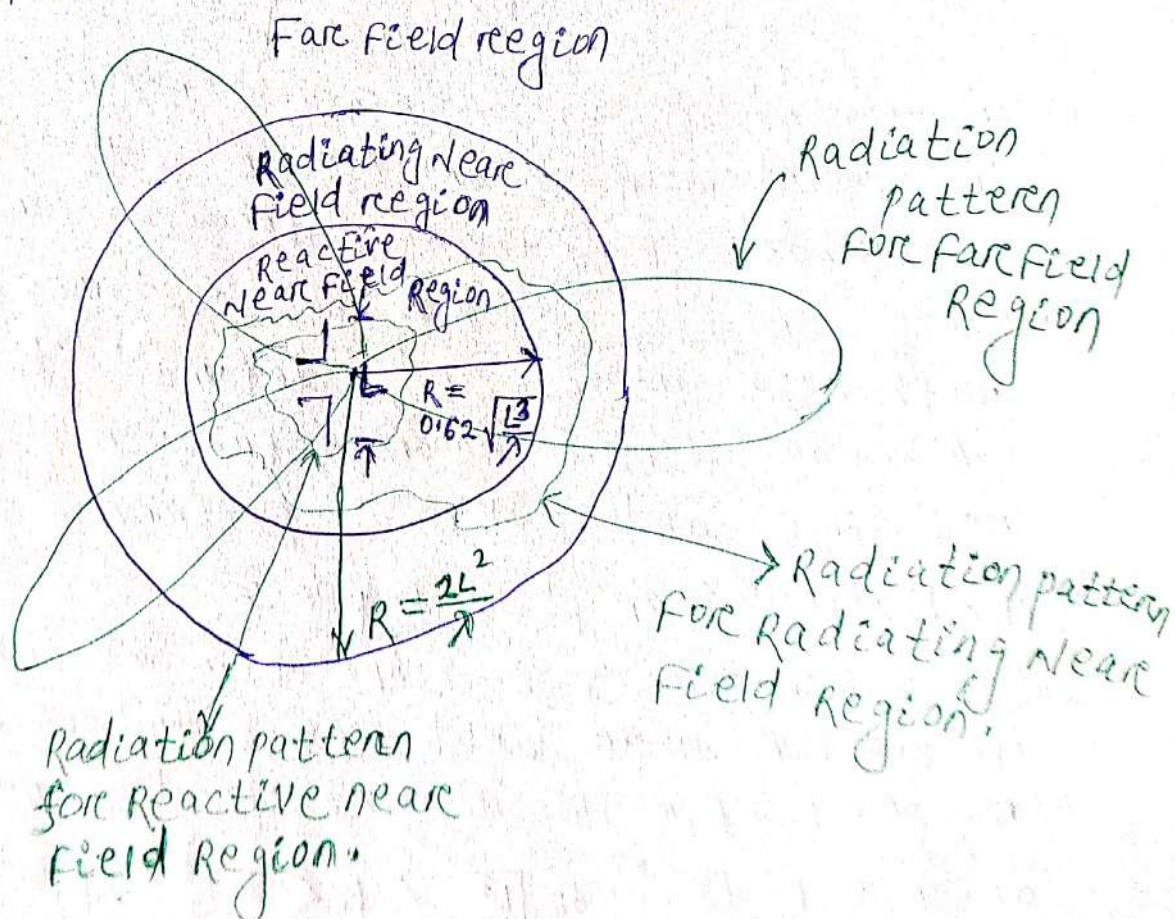 Fare Field reegion
Radiating Neare
Field reegion
Reactive
Neare Field
Region
L
R =
0.62 √L³/λ
R = 2L²/λ
Radiation
patteren
Fore Fare Field
Region
Radiation patteren
Fore Radiating Neare
Field Region.
Radiation patteren
fore Reactive neare
Field Region.